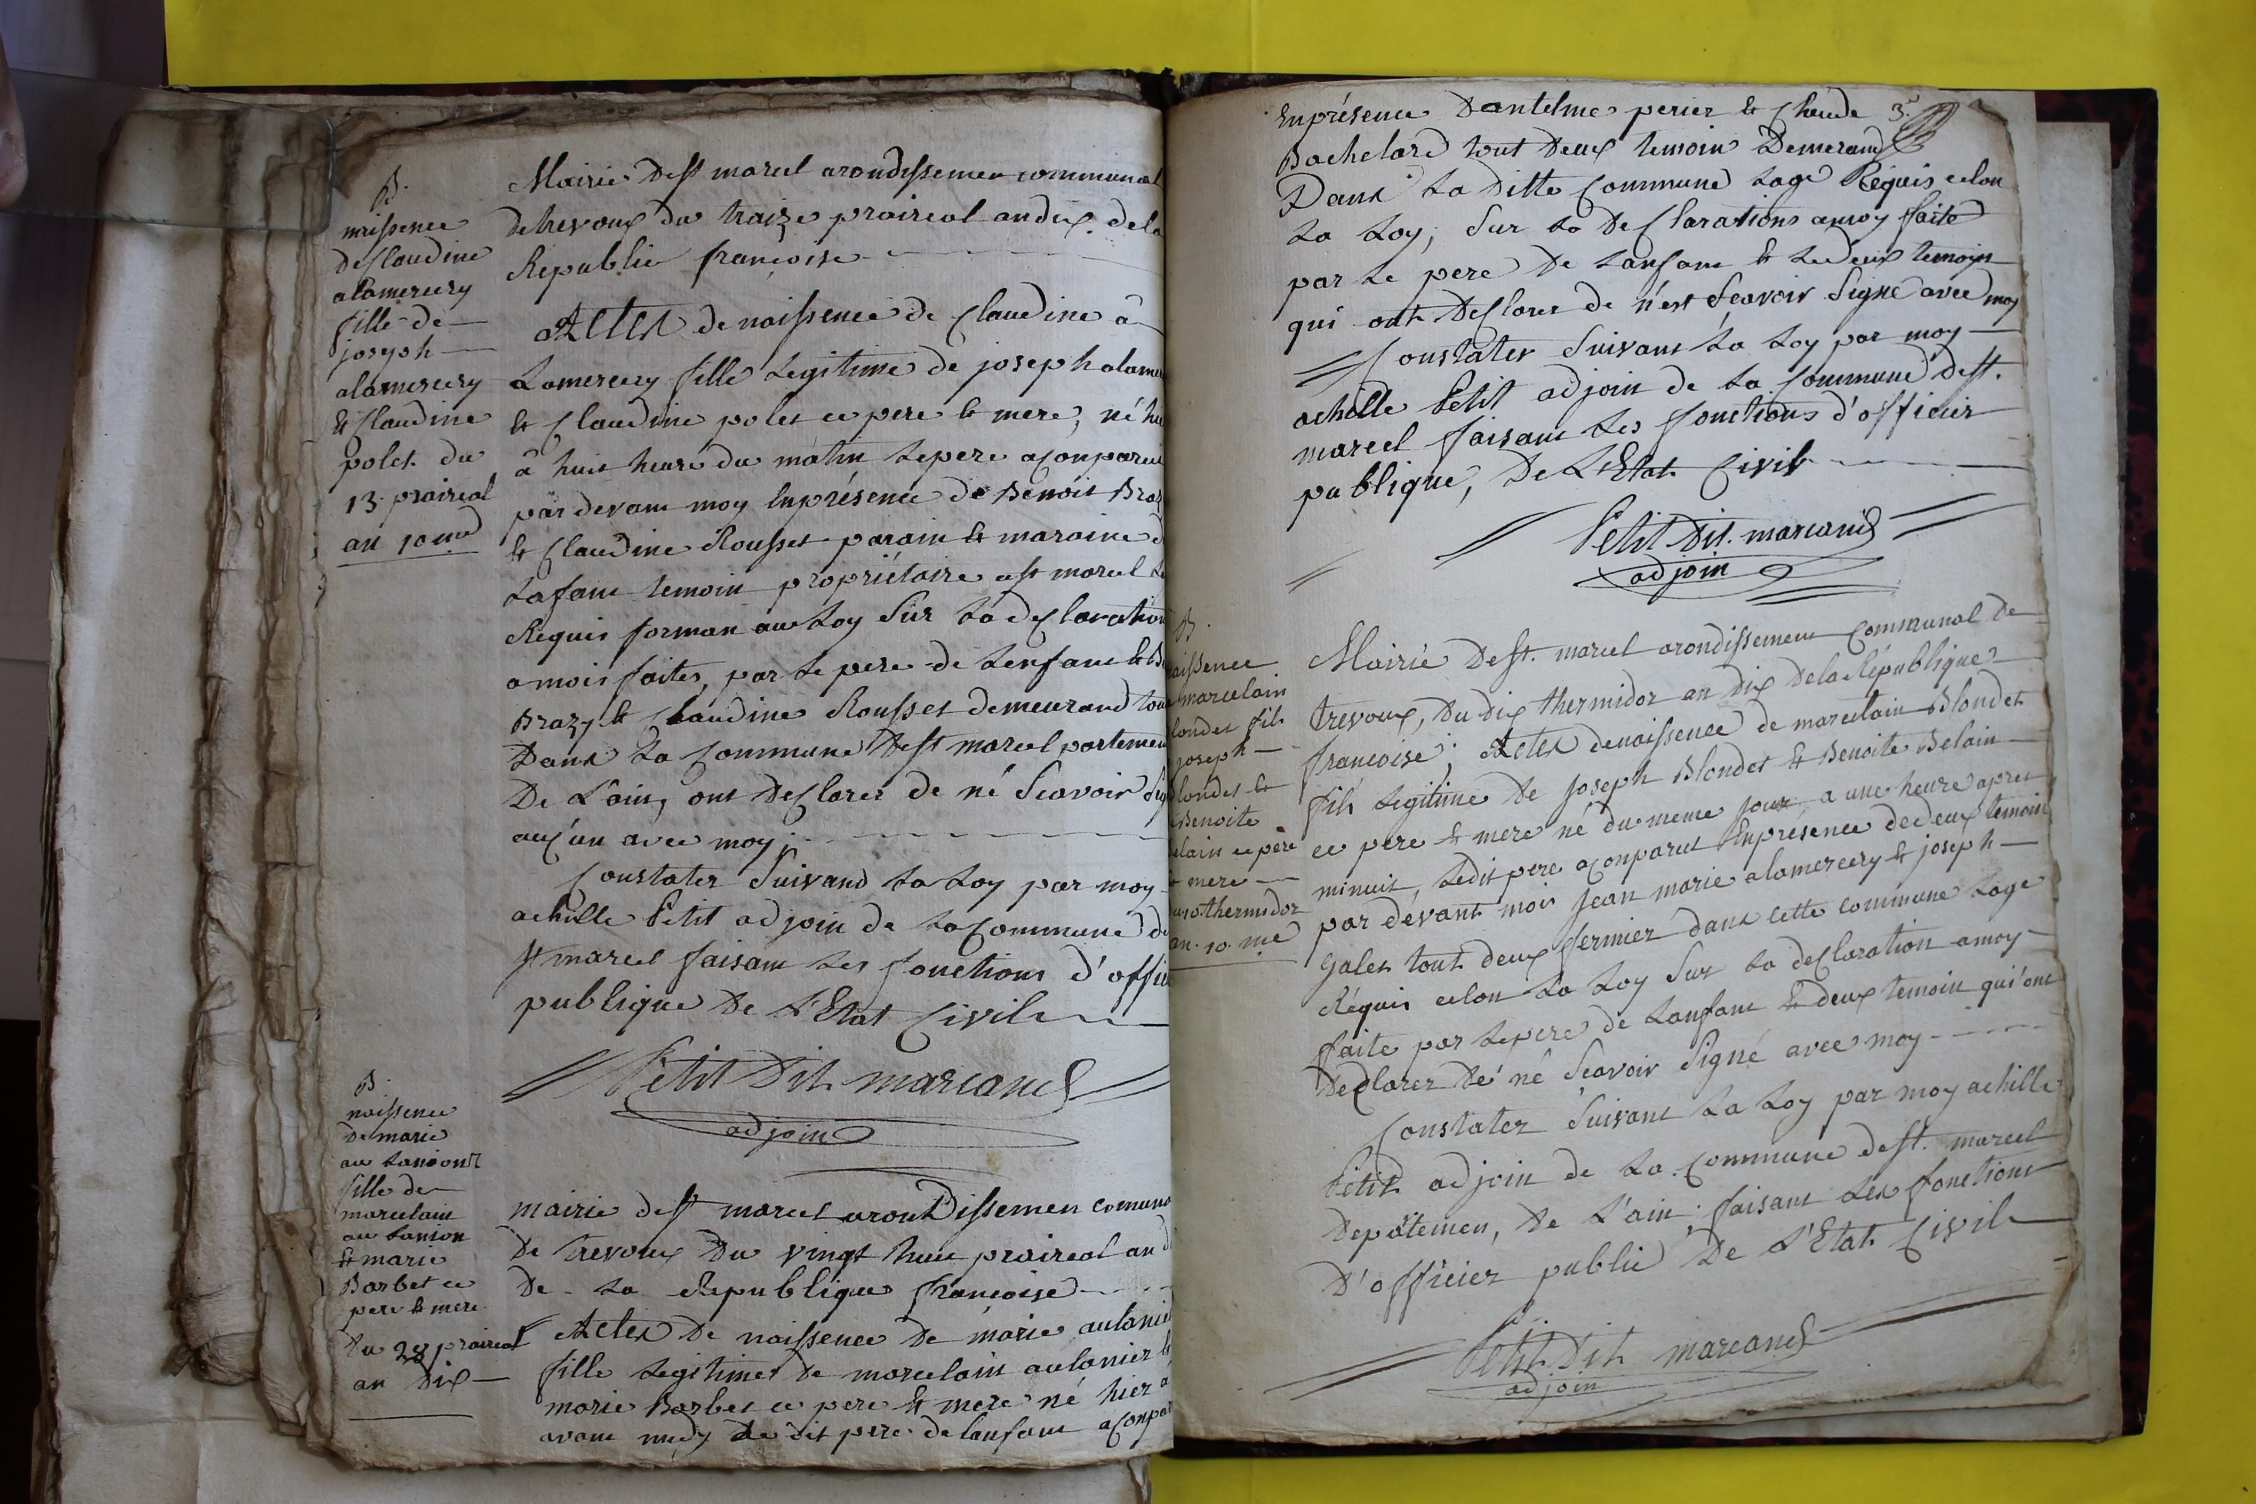 B.
naissence
de Claudine
alamercery
fille de
joseph
alamercery
et Claudine
polet du
13 praireal
an 10me
Mairie de st marcel arondissemen communal
de trevoux du traize praireal an dix de la
Republic francoise
Actes de naissence de Claudine a
Lamercery fille Legitime de joseph alamer
et Claudine polet ce pere et mere, né
a huit heure du matin Le pere a Conparu
par devant moy En présence de Benoit Braz
et Claudine Rousset parain et maraine d
Lafant temoin propriétaire a st marcel
Requis forman au Loy Sur La de Claration
a mois faites, par Le pere de Lenfant et B
Brazy et Claudine Rousset demeurand tou
Dans La Commune De st marcel partemen
De L'ain, ont de Clarer de né Scavoir Sig
auq'un avec moy
Constater Suivand La Loy par moy
achille Petit adjoin de La Commune de
st marcel faisant Les fonctions d'offici
publique De L'Etat Civile
Petit Dit marcand
adjoin
B.
naissence
de marie
au Lanionr
fille de
marcelain
au Lanion
et marie
Barbet ce
pere et mere
du 28 praireal
an Dix
mairie de st marcel arondissemen comuna
De trevoux Du vingt huit praireal an d
De La Republique francoise
Actes De naissence De marie aulanier
fille Legitimes de marcelain aulanier et
marie Barbet ce pere et mere né hier a
avant midy Le dit pere de Lanfant a Conpar
En présence D'antelme perier et Claude 3.
Bachelard tout Deux temoin Demerand
Dans La Ditte Commune Lage Requis celon
La Loy, Sur La De Clarations a moy faite
par Le pere De Lanfant et Le deux temoin
qui ont De Clarer de n'est Scavoir Signé avec moy
Constater Suivant La Loy par moy
achille Petit adjoin de La Commune de st.
marcel faisant Les fonctions d'officier
publique, De L'Etat Civil
Petit Dit marcand
adjoin
B.
aissence
marcelain
londet fils
joseph
londet et
Benoite
elain ce pere
mere
10 thermidor
an 10 me
Mairie De st. marcel arondissement Communal de
trevoux, Du Dix thermidor an Dix De la République
francoise, Actes de naissence de marcelain Blondet
fils Legitime De Joseph Blondet et Benoite Belain
ce pere et mere né du meme jour a une heure apres
minuit, Le dit pere a Conparut En présence de deux temoin
par devant mois Jean marie alamercery et joseph
Galet tout deux fermier dans cette commune Lage
Réquis celon La Loy Sur La de Claration a moy
faite par Le pere de Lanfant et deux temoin qui ont
De Clarer de né Scavoir Signé avec moy
Constater Suivant La Loy par moy achille
Petit adjoin de La Commune de st. marcel
Depatemen, De L'ain, faisant Les fonctions
D'officier public De L'Etat Civil
Petit Dit marcand
adjoin